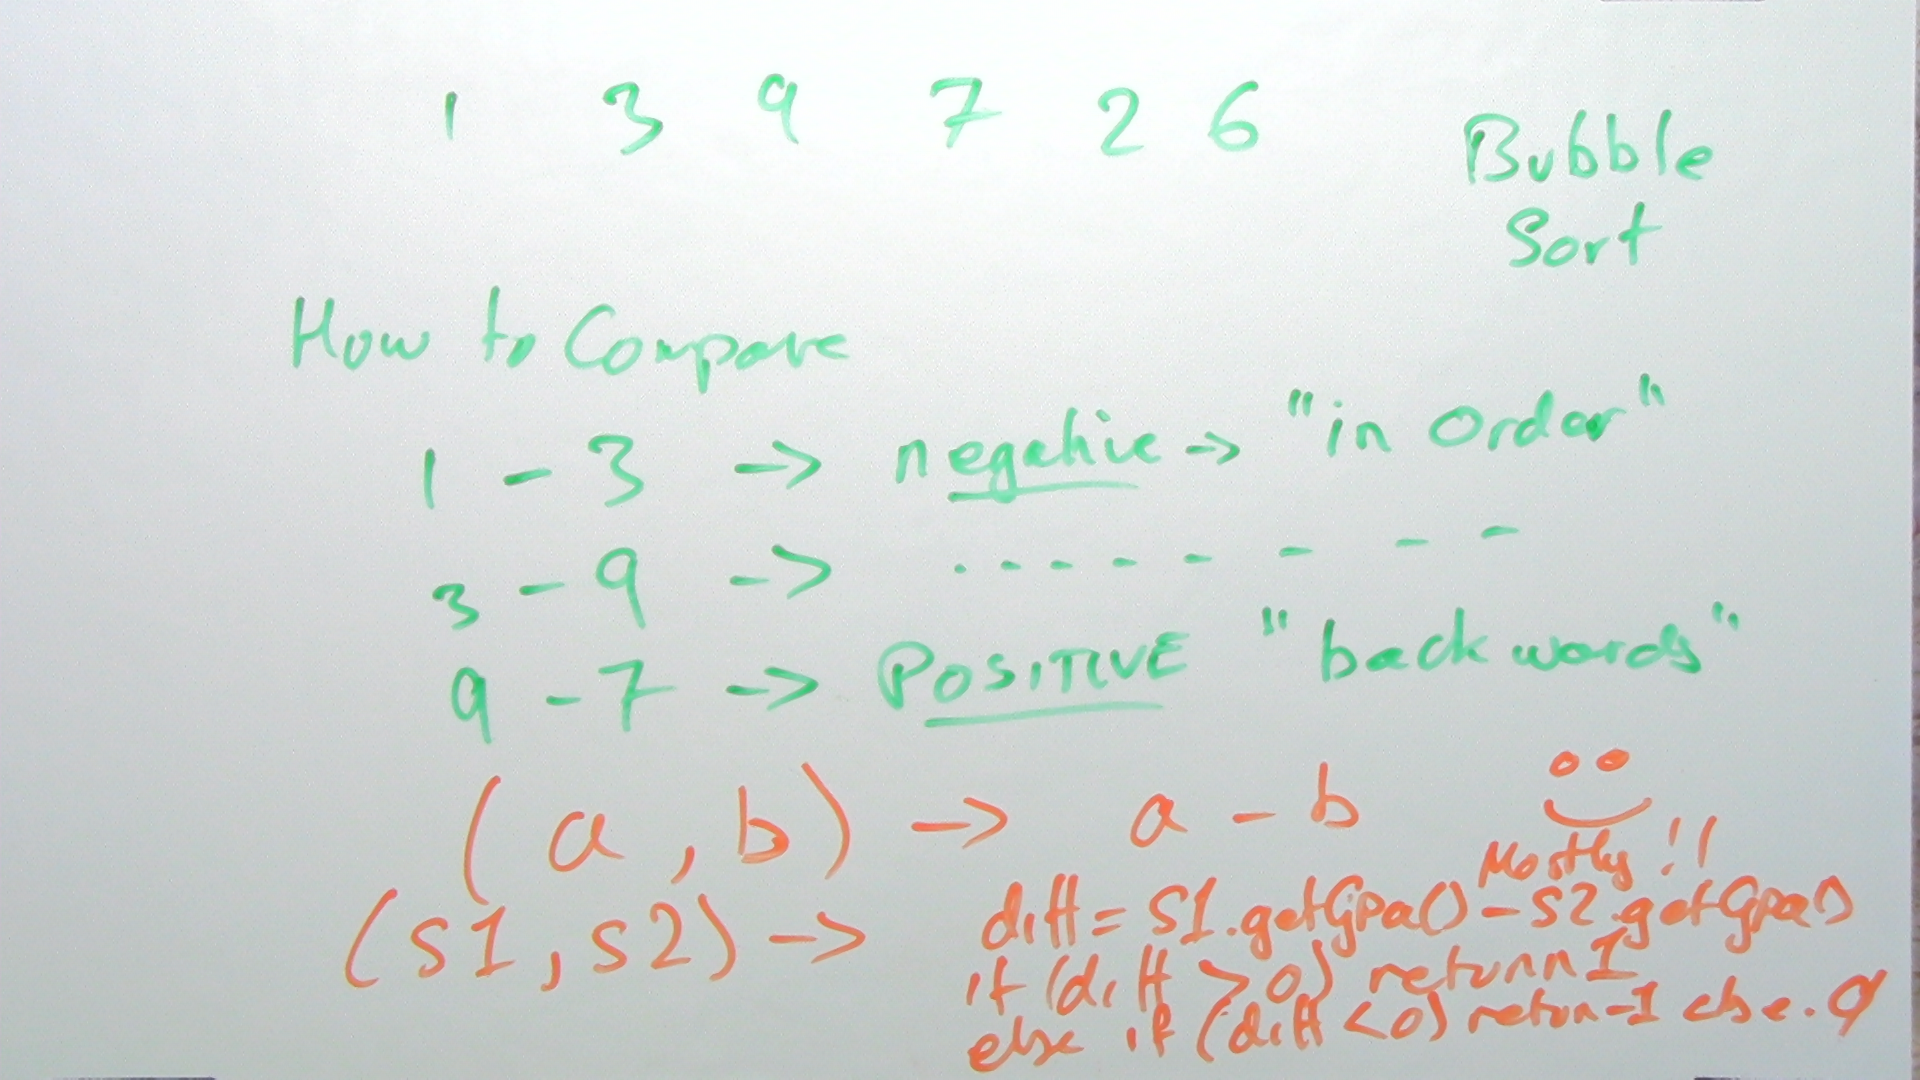 1 3 9 7 2 6
Bubble
Sort
How to Compare
1 - 3 -> negative -> "in order"
3 - 9 -> . - - - - - - -
9 - 7 -> POSITIVE "backwards"
(a, b) -> a - b
Mostly!!
(s1, s2) -> diff = s1.getGpa() - s2.getGpa()
if (diff > 0) return 1
else if (diff < 0) return -1 else. 0